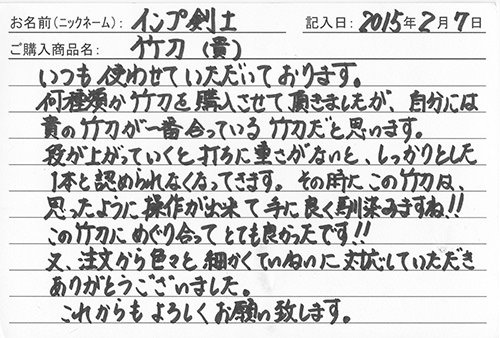 お名前(ニックネーム): インプ剣士 記入日: 2015年2月7日
ご購入商品名: 竹刀(貴)
いつも使わせていただいております。
何種類か竹刀を購入させて頂きましたが、自分には
貴の竹刀が一番合っている竹刀だと思います。
段が上がっていくと打ちに重さがないと、しっかりとした
1本と認められなくなってきます。その時にこの竹刀は、
思ったように操作が出来て手に良く馴染みますね!!
この竹刀にめぐり合ってとても良かったです!!
又、注文から色々と細かくていねいに対応していただき
ありがとうございました。
これからもよろしくお願い致します。